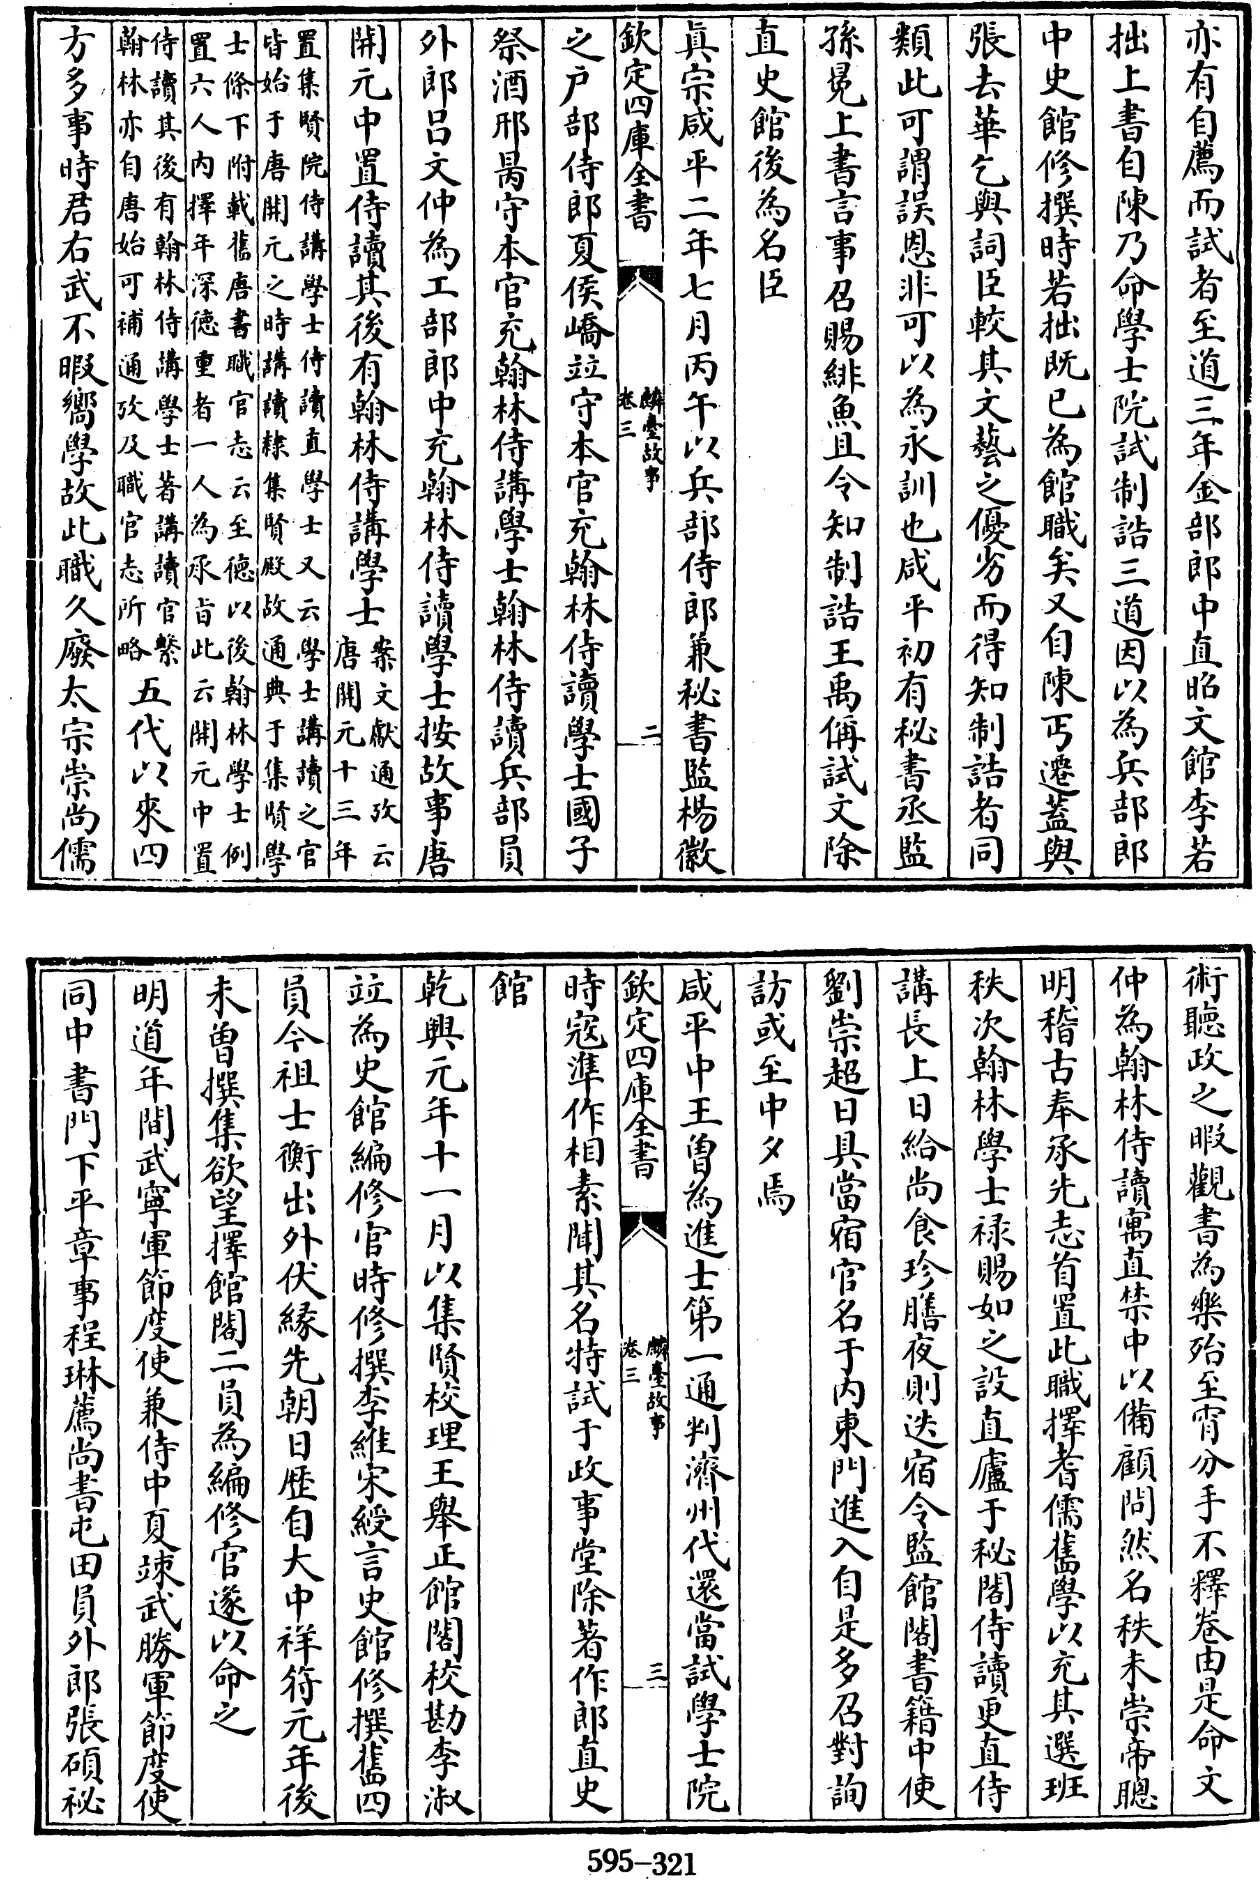 亦有自薦而試者至道三年金部郎中直昭文館李若
拙上書自陳乃命學士院試制誥三道因以為兵部郎
中史館修撰時若拙既已為館職矣又自陳丐遷蓋與
張去華乞與詞臣較其文藝之優劣而得知制誥者同
類此可謂誤恩非可以為永訓也咸平初有秘書丞監
孫冕上書言事召賜緋魚且令知制誥王禹偁試文除
直史館後為名臣
真宗咸平二年七月丙午以兵部侍郎兼秘書監楊徽
欽定四庫全書
麟臺故事
卷三
二
之戶部侍郎夏侯嶠並守本官充翰林侍讀學士國子
祭酒邢昺守本官充翰林侍講學士翰林侍讀兵部員
外郎呂文仲為工部郎中充翰林侍讀學士按故事唐
開元中置侍讀其後有翰林侍講學士
案文獻通攷云
唐開元十三年
置集賢院侍講學士侍讀直學士又云學士講讀之官
皆始于唐開元之時講讀隸集賢殿故通典于集賢學
士條下附載舊唐書職官志云至德以後翰林學士例
置六人內擇年深德重者一人為承旨此云開元中置
侍讀其後有翰林侍講學士著講讀官繫
翰林亦自唐始可補通攷及職官志所略
五代以來四
方多事時君右武不暇嚮學故此職久廢太宗崇尚儒
術聽政之暇觀書為樂殆至宵分手不釋卷由是命文
仲為翰林侍讀寓直禁中以備顧問然名秩未崇帝聰
明稽古奉承先志首置此職擇耆儒舊學以充其選班
秩次翰林學士祿賜如之設直廬于秘閣侍讀更直侍
講長上日給尚食珍膳夜則迭宿令監館閣書籍中使
劉崇超日具當宿官名于內東門進入自是多召對詢
訪或至中夕焉
咸平中王曾為進士第一通判濟州代還當試學士院
欽定四庫全書
麟臺故事
卷三
三
時寇準作相素聞其名特試于政事堂除著作郎直史
館
乾興元年十一月以集賢校理王舉正館閣校勘李淑
並為史館編修官時修撰李維宋綬言史館修撰舊四
員今祖士衡出外伏緣先朝日歷自大中祥符元年後
未曾撰集欲望擇館閣二員為編修官遂以命之
明道年間武寧軍節度使兼侍中夏竦武勝軍節度使
同中書門下平章事程琳薦尚書屯田員外郎張碩祕
595-321